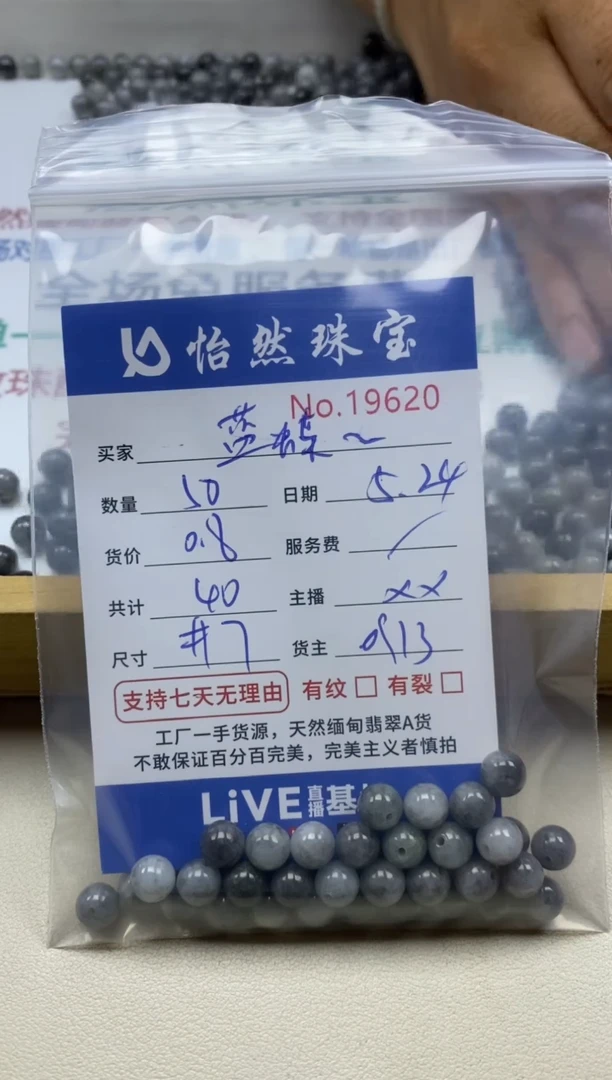 怡然珠宝
No.19620
买家 蓝蝶~
数量 50 日期 5.24
货价 0.8 服务费 /
共计 40 主播 xx
尺寸 #7 货主
支持七天无理由 有纹 □ 有裂 □
工厂一手货源，天然缅甸翡翠A货
不敢保证百分百完美，完美主义者慎拍
LiVE直播基